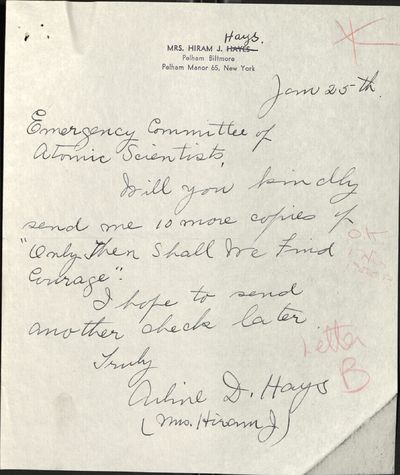 Hays.
MRS. HIRAM J. HAYES
Pelham Biltmore
Pelham Manor 65, New York
Jan 25th.
Emergency Committee of
Atomic Scientists,
Will you kindly
send me 10 more copies of
"Only Then Shall We Find
Courage".
I hope to send
another check later
Truly
D. Hays
(Mrs. Hiram J)
O.K
Letter
B